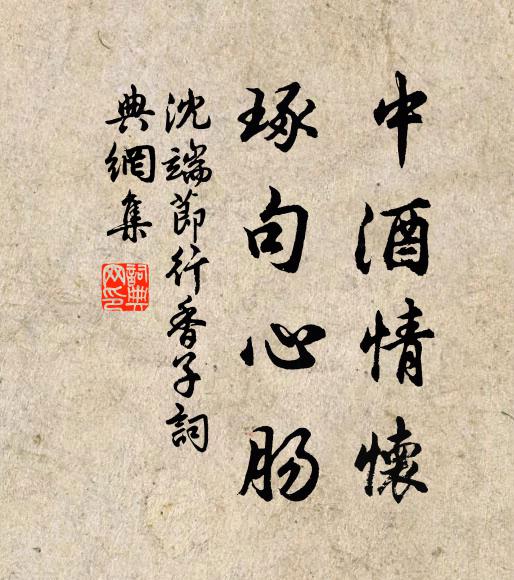 中酒情懷
琢句心肠
沈端節行香子詞
典網集
詞典網印